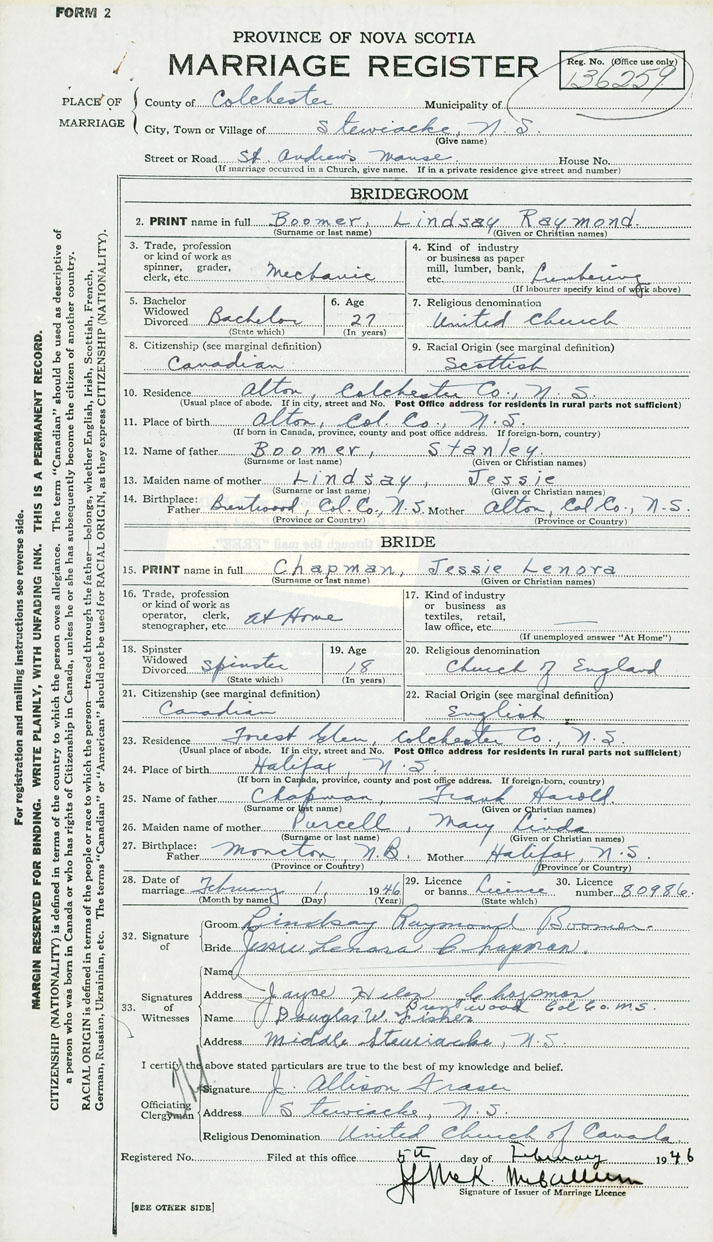 FORM 2
PROVINCE OF NOVA SCOTIA
MARRIAGE REGISTER
Reg. No. (Office use only)
136259
PLACE OF MARRIAGE
County of Colchester Municipality of
City, Town or Village of Stewiacke, N.S.
(Give name)
Street or Road St. Andrew's Manse House No.
(If marriage occurred in a Church, give name. If in a private residence give street and number)
BRIDEGROOM
2. PRINT name in full Boomer, Lindsay Raymond.
(Surname or last name) (Given or Christian names)
3. Trade, profession or kind of work as spinner, grader, clerk, etc. Mechanic
4. Kind of industry or business as paper mill, lumber, bank, etc. Lumbering
(If labourer specify kind of work above)
5. Bachelor Widowed Divorced Bachelor
(State which)
6. Age 27
(In years)
7. Religious denomination
United Church
8. Citizenship (see marginal definition)
Canadian
9. Racial Origin (see marginal definition)
Scottish
10. Residence Alton, Colchester Co., N.S.
(Usual place of abode. If in city, street and No. Post Office address for residents in rural parts not sufficient)
11. Place of birth Alton, Col. Co., N.S.
(If born in Canada, province, county and post office address. If foreign-born, country)
12. Name of father Boomer, Stanley.
(Surname or last name) (Given or Christian names)
13. Maiden name of mother Lindsay, Jessie
(Surname or last name) (Given or Christian names)
14. Birthplace: Father Brentwood, Col. Co., N.S. Mother Alton, Col. Co., N.S.
(Province or Country) (Province or Country)
BRIDE
15. PRINT name in full Chapman, Jessie Lenora
(Surname or last name) (Given or Christian names)
16. Trade, profession or kind of work as operator, clerk, stenographer, etc. at Home
17. Kind of industry or business as textiles, retail, law office, etc. —
(If unemployed answer "At Home")
18. Spinster Widowed Divorced Spinster
(State which)
19. Age 18
(In years)
20. Religious denomination
Church of England
21. Citizenship (see marginal definition)
Canadian
22. Racial Origin (see marginal definition)
English
23. Residence Forest Glen, Colchester Co., N.S.
(Usual place of abode. If in city, street and No. Post Office address for residents in rural parts not sufficient)
24. Place of birth Halifax, N.S.
(If born in Canada, province, county and post office address. If foreign-born, country)
25. Name of father Chapman, Frank Harold.
(Surname or last name) (Given or Christian names)
26. Maiden name of mother Purcell, Mary Linda
(Surname or last name) (Given or Christian names)
27. Birthplace: Father Moncton, N.B. Mother Halifax, N.S.
(Province or Country) (Province or Country)
28. Date of marriage February 1, 1946
(Month by name) (Day) (Year)
29. Licence or banns Licence
(State which)
30. Licence number 80986.
32. Signature of
Groom Lindsay Raymond Boomer.
Bride Jessie Lenora Chapman.
33. Signatures of Witnesses
Name
Address Joyce Helen Chapman
Brentwood Col Co. N.S.
Name Douglas W. Fisher
Address Middle Stewiacke, N.S.
I certify the above stated particulars are true to the best of my knowledge and belief.
Officiating Clergyman
Signature J. Allison Fraser
Address Stewiacke, N.S.
Religious Denomination United Church of Canada.
Registered No. Filed at this office 5th day of February 1946
McCallum
Signature of Issuer of Marriage Licence
[SEE OTHER SIDE]
For registration and mailing instructions see reverse side.
MARGIN RESERVED FOR BINDING. WRITE PLAINLY, WITH UNFADING INK. THIS IS A PERMANENT RECORD.
CITIZENSHIP (NATIONALITY) is defined in terms of the country to which the person owes allegiance. The term "Canadian" should be used as descriptive of
a person who was born in Canada or who has rights of Citizenship in Canada, unless he or she has subsequently become the citizen of another country.
RACIAL ORIGIN is defined in terms of the people or race to which the person—traced through the father—belongs, whether English, Irish, Scottish, French,
German, Russian, Ukrainian, etc. The terms "Canadian" or "American" should not be used for RACIAL ORIGIN, as they express CITIZENSHIP (NATIONALITY).